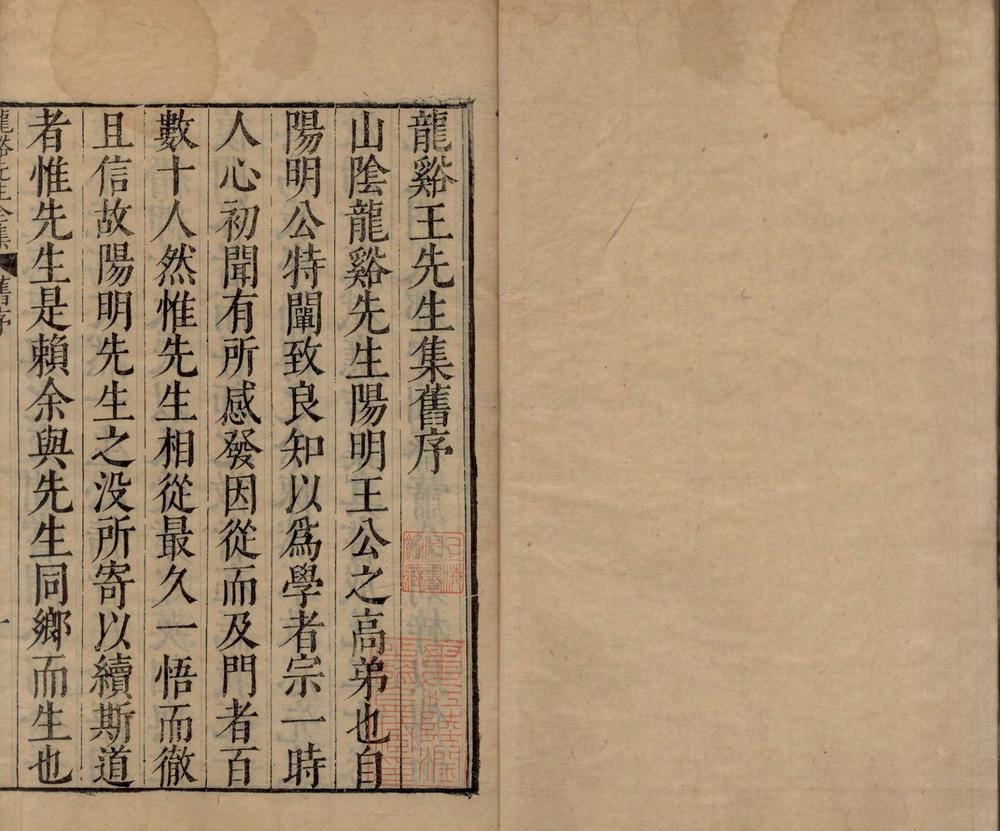 龍谿王先生集舊序
山陰龍谿先生陽明王公之高弟也自
陽明公特闡致良知以爲學者宗一時
人心初聞有所感發因從而及門者百
數十人然惟先生相從最久一悟而徹
且信故陽明先生之没所寄以續斯道
者惟先生是賴余與先生同鄉而生也
龍谿先生全集 舊序 一